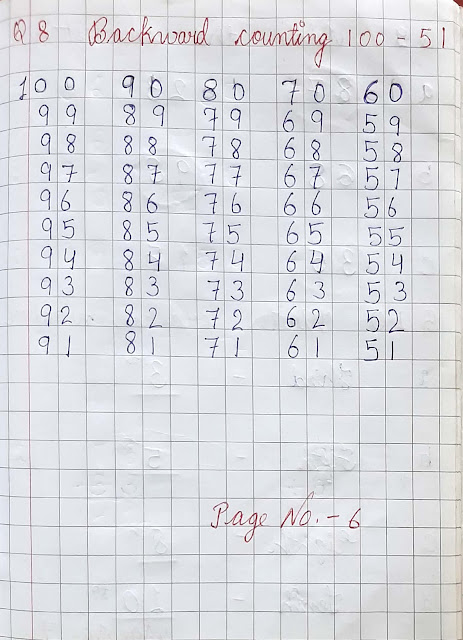 Q 8 Backward counting 100 - 51
100 90 80 70 60
99 89 79 69 59
98 88 78 68 58
97 87 77 67 57
96 86 76 66 56
95 85 75 65 55
94 84 74 64 54
93 83 73 63 53
92 82 72 62 52
91 81 71 61 51
Page No. - 6